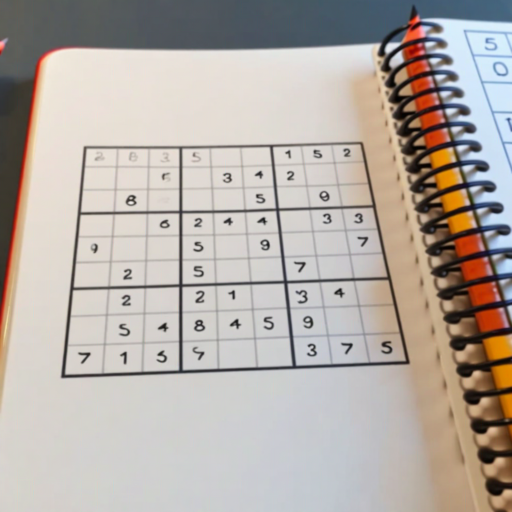 2 8 3 5 1 5 2
3 4 2
8 5 9
6 2 4 4 3 3
9 5 9 7
2 5 7
2 2 1 3 4
5 4 8 4 5 9
7 1 5 3 7 5
5
0